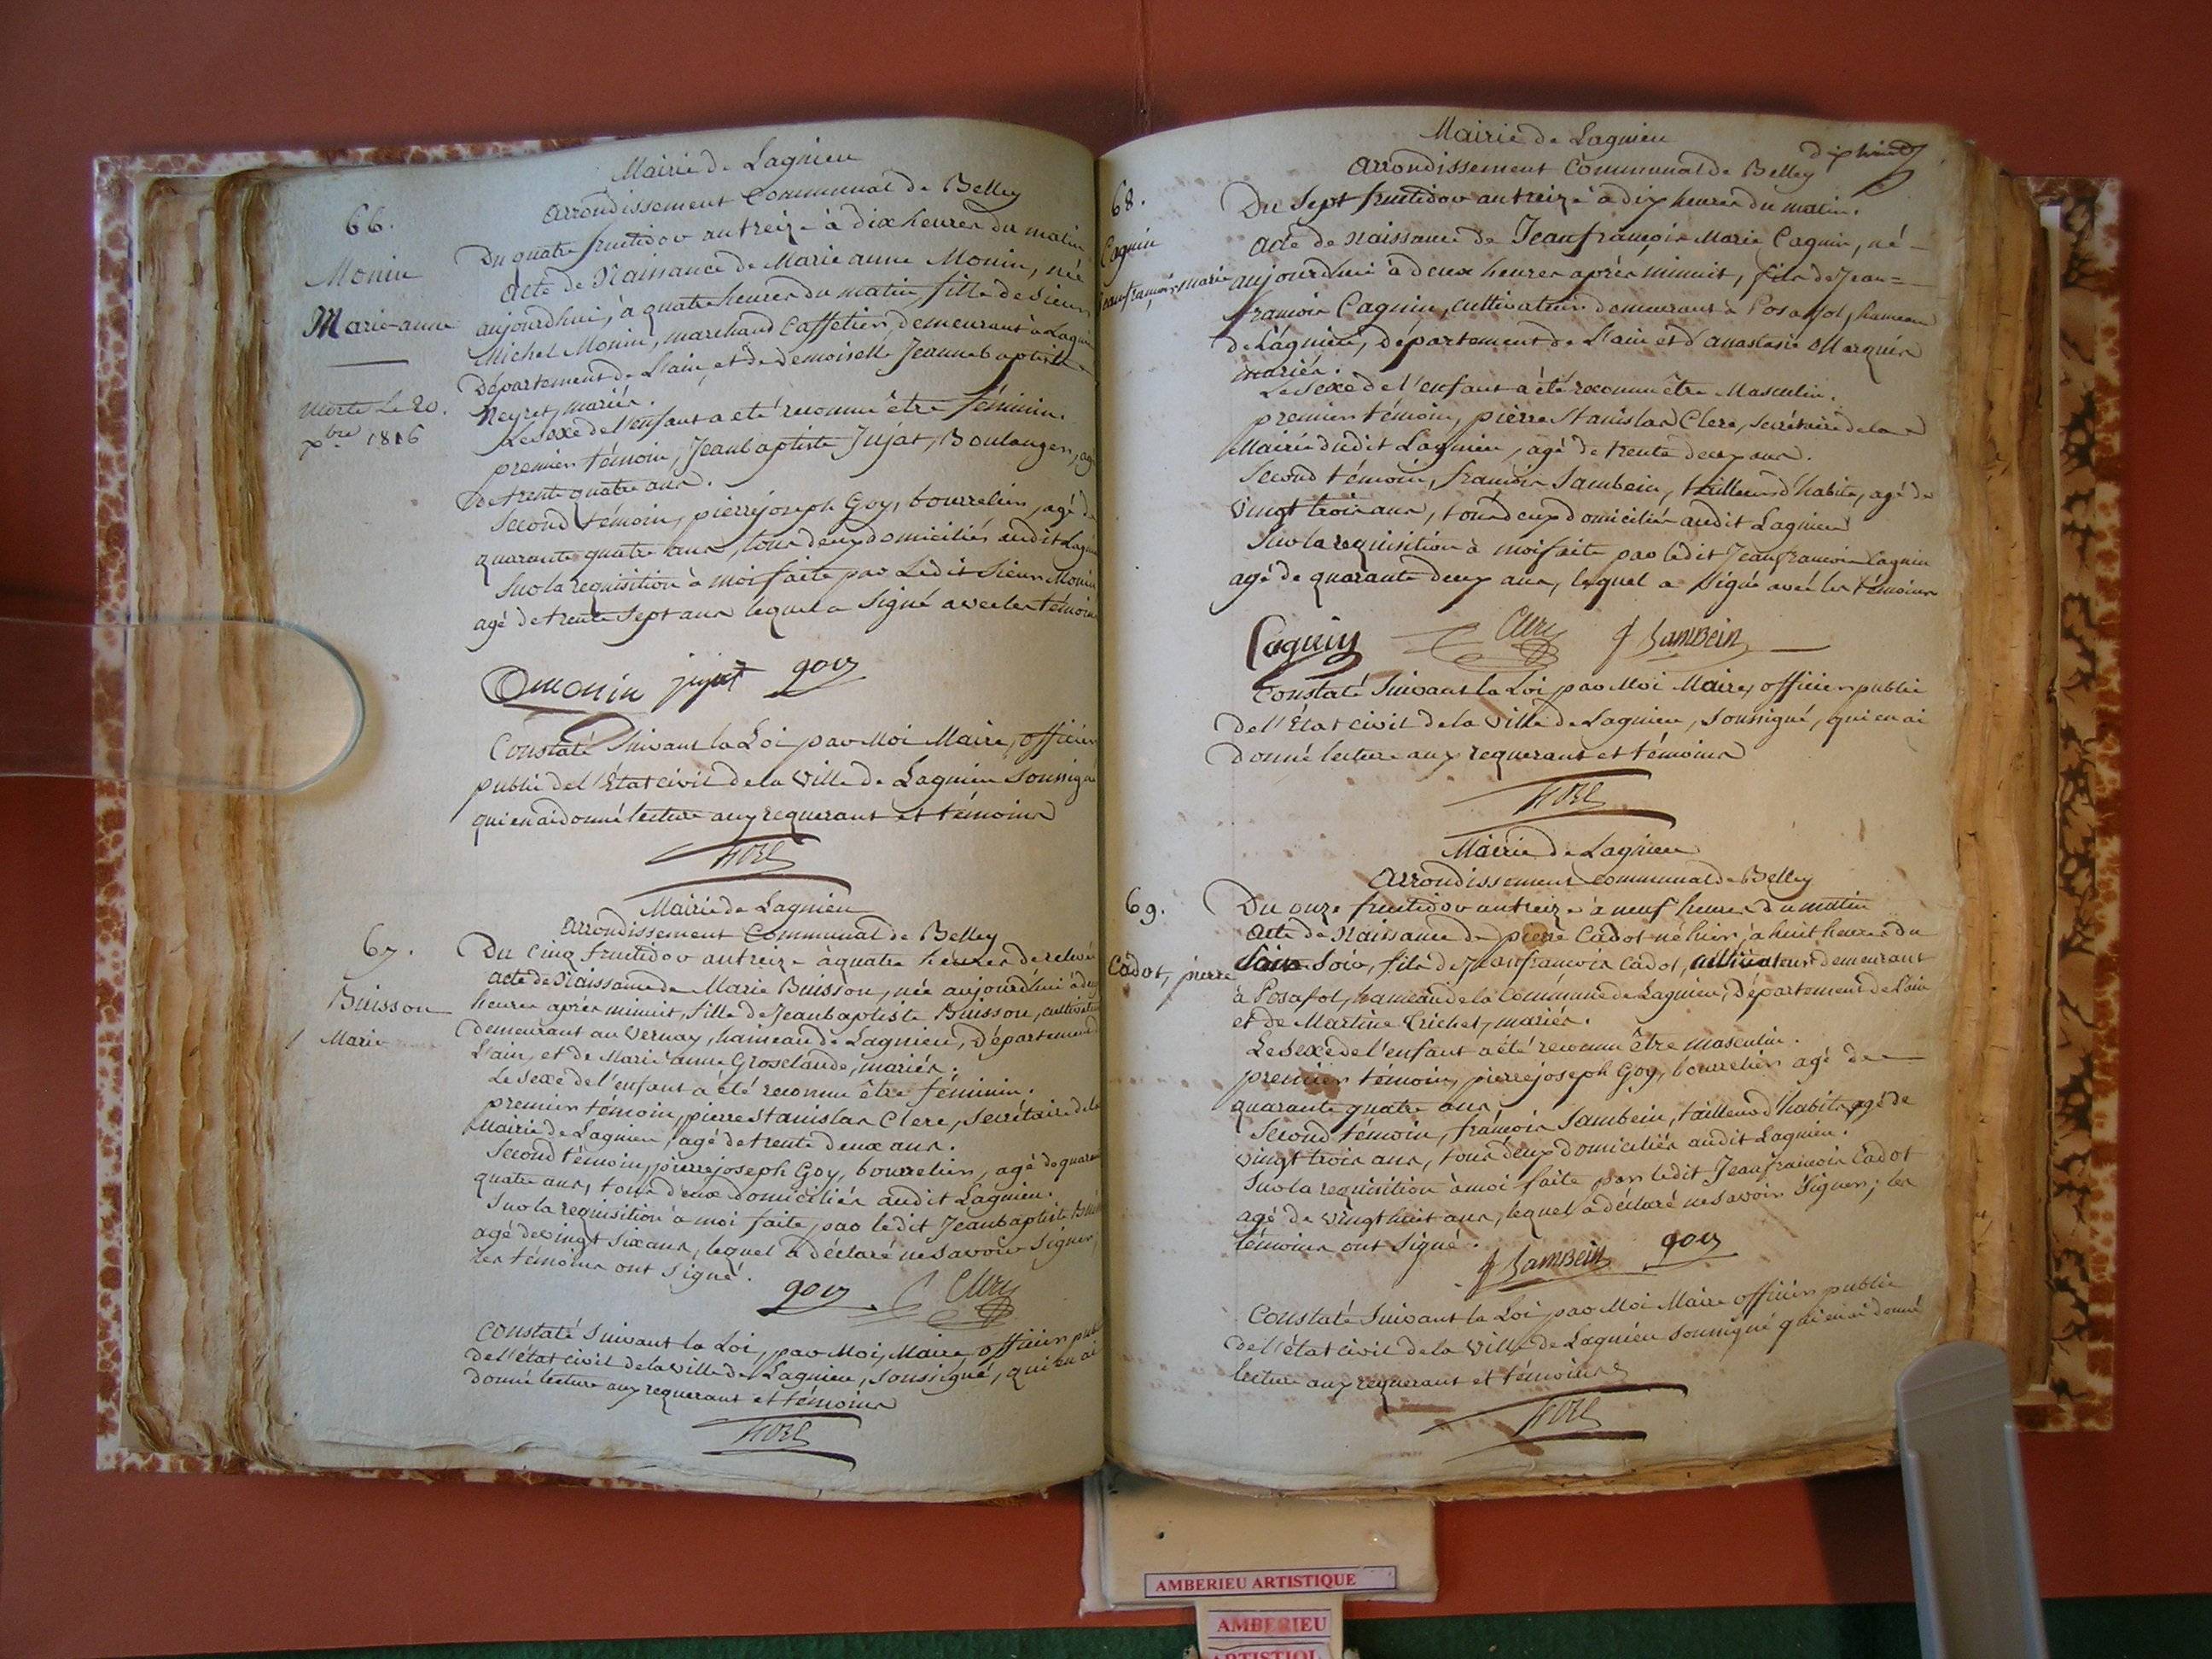 Mairie de Lagnieu
Arrondissement Communal de Belley
66.
Monin
Marie-anne
morte le 20.
xbre 1816
Du quatre fructidor an treize à dix heures du matin
Acte de Naissance de Marie anne Monin, née
aujourdhui, à quatre heures du matin, fille de Sieur
Michel Monin, marchand Caffetier, demeurant à Lagnieu
Département de L'ain, et de demoiselle Jeanne baptiste
Neyret, mariés.
Le sexe de l'enfant a été reconnu être féminin.
premier témoin, Jean baptiste Jujat, Boulanger, agé
de trente quatre ans.
Second témoin, pierre joseph Goy, bourrelier, agé de
quarante quatre ans, tous deux domiciliés audit Lagnieu
Sur la requisition à moi faite par Ledit Sieur Monin
agé de trente Sept ans lequel a Signé avec les témoins
monin jujat goy
Constaté Suivant la Loi par Moi Maire, officier
public de l'Etat civil de la Ville de Lagnieu Soussigné
qui en ai donné lecture aux requerant et témoins
Mairie de Lagnieu
Arrondissement Communal de Belley
67.
Buisson
Marie
Du Cinq fructidor an treize à quatre heures de relevée
acte de Naissance de Marie Buisson, née aujourd'hui à deux
heures après minuit, fille de Jean baptiste Buisson, cultivateur
demeurant au Vernay, hameau de Lagnieu, Département de
L'ain, et de Marie anne Grosclaude, mariés.
Le Sexe de l'enfant a été reconnu être féminin.
premier témoin, pierre Stanislas Clerc, Secrétaire de la
Mairie de Lagnieu, agé de trente deux ans.
Second témoin, pierre joseph Goy, bourrelier, agé de quarante
quatre ans, tous deux domiciliés audit Lagnieu.
Sur la requisition à moi faite, par ledit Jean baptiste Buisson
agé de vingt six ans, lequel a déclaré ne Savoir Signer,
les témoins ont Signé.
goy Clerc
Constaté Suivant la Loi, par Moi, Maire, officier public
de l'état civil de la ville de Lagnieu, Soussigné, qui en ai
donné lecture aux requerant et témoins
Mairie de Lagnieu
Arrondissement Communal de Belley
68.
Cagnin
Jean françois marie
Du Sept fructidor an treize à dix heures du matin.
Acte de Naissance de Jean françois Marie Cagnin, né
aujourdhui à deux heures après minuit, fils de Jean=
françois Cagnin, cultivateur demeurant à Posafol, hameau
de Lagnieu, Département de L'ain et d'anastasie Marquis
mariés.
Le Sexe de l'enfant a été reconnu être Masculin.
premier témoin, pierre Stanislas Clerc, Secrétaire de la
Mairie dudit Lagnieu, agé de trente deux ans.
Second témoin, françois Sambein, tailleur d'habits, agé de
vingt trois ans, tous deux domiciliés audit Lagnieu
Sur la requisition à moi faite par ledit Jean françois Cagnin
agé de quarante deux ans, lequel a Signé avec les témoins
Cagnin Clerc f SamBein
Constaté Suivant la Loi, par Moi Maire, officier public
de l'Etat civil de la Ville de Lagnieu, Soussigné, qui en ai
donné lecture aux requerant et témoins
Mairie de Lagnieu
Arrondissement communal de Belley
69.
Cadot, pierre
Du onze fructidor an treize à neuf heures du matin
Acte de Naissance de pierre Cadot né hier, à huit heures du
Soir, fils de Jean françois Cadot, cultivateur demeurant
à Posafol, hameau de la Commune de Lagnieu, Département de L'ain
et de Martine Trichet, mariés.
Le Sexe de l'enfant a été reconnu être masculin.
premier témoin, pierre joseph Goy, bourrelier agé de
quarante quatre ans,
Second témoin, françois Sambein, tailleur d'habits agé de
vingt trois ans, tous deux domiciliés audit Lagnieu.
Sur la requisition à moi faite par ledit Jean françois Cadot
agé de vingt huit ans, lequel a déclaré ne savoir Signer; les
témoins ont Signé.
f SamBein goy
Constaté Suivant la Loi par Moi Maire officier public
de l'état civil de la Ville de Lagnieu soussigné qui en ai donné
lecture aux requerant et témoins
AMBERIEU ARTISTIQUE
AMBERIEU